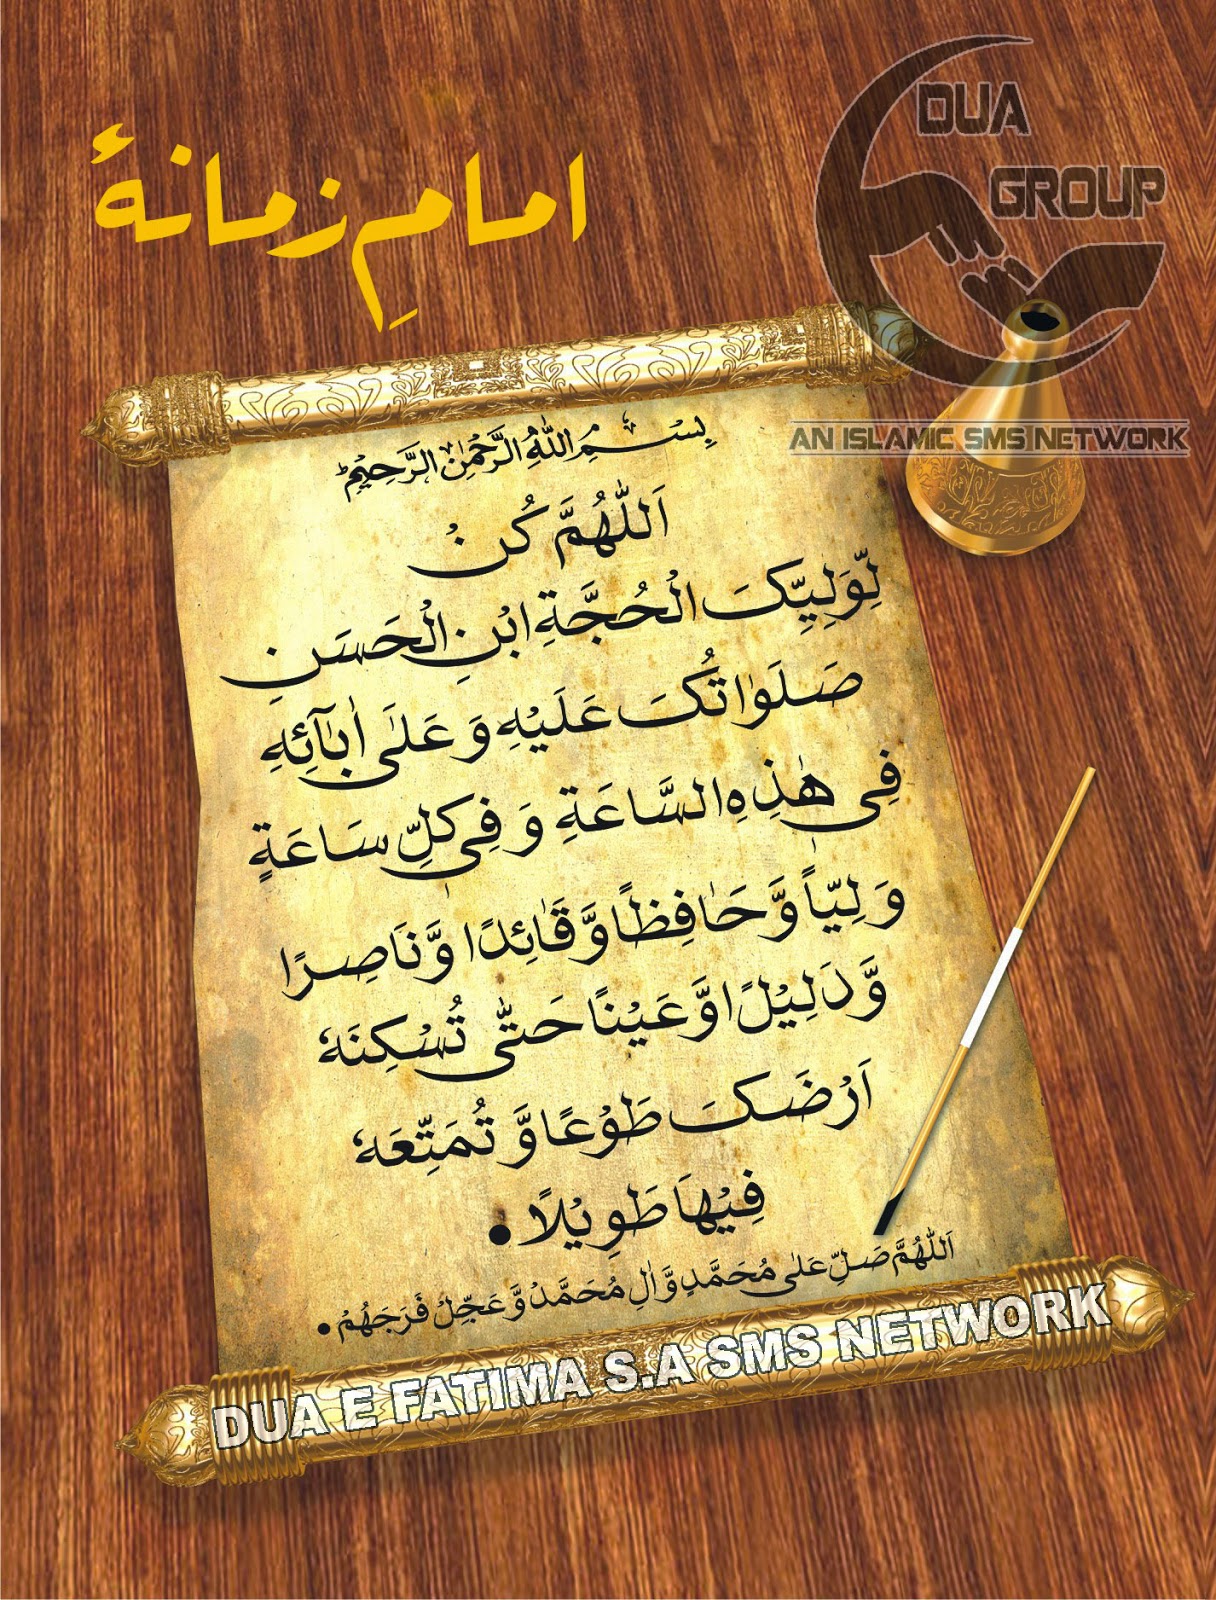 DUA
GROUP
AN ISLAMIC SMS NETWORK
امامِ زمانهٔ
بِسْمِ اللهِ الرَّحْمٰنِ الرَّحِيْمِ
اَللّٰهُمَّ كُنْ
لِّوَلِيِّكَ الْحُجَّةِ ابْنِ الْحَسَنِ
صَلَوٰاتُكَ عَلَيْهِ وَ عَلٰى اٰبَآئِهٖ
فِیْ هٰذِهِ السَّاعَةِ وَ فِیْ كُلِّ سَاعَةٍ
وَلِيّاً وَّ حَافِظًا وَّ قَائِدًا وَّ نَاصِرًا
وَّ دَلِيْلًا وَّ عَيْنًا حَتّٰى تُسْكِنَهٗ
اَرْضَكَ طَوْعًا وَّ تُمَتِّعَهٗ
فِيْهَا طَوِيْلًا •
اَللّٰهُمَّ صَلِّ عَلٰى مُحَمَّدٍ وَّ اٰلِ مُحَمَّدٍ وَّ عَجِّلْ فَرَجَهُمْ •
DUA E FATIMA S.A SMS NETWORK